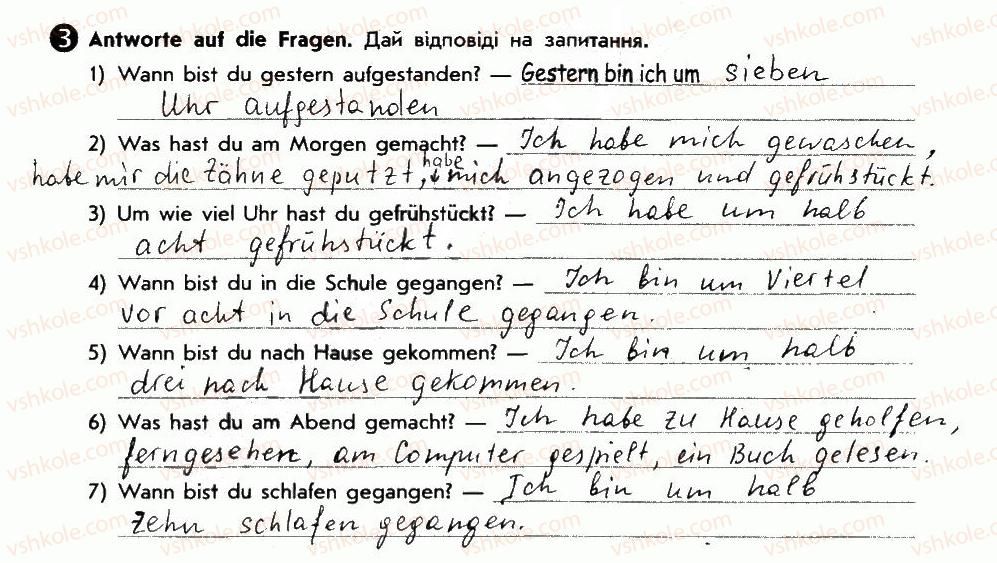 3 Antworte auf die Fragen. Дай відповіді на запитання.
1) Wann bist du gestern aufgestanden? — Gestern bin ich um sieben
Uhr aufgestanden
2) Was hast du am Morgen gemacht? — Ich habe mich gewaschen,
habe mir die Zähne geputzt, habe mich angezogen und gefrühstückt.
3) Um wie viel Uhr hast du gefrühstückt? — Ich habe um halb
acht gefrühstückt.
4) Wann bist du in die Schule gegangen? — Ich bin um Viertel
vor acht in die Schule gegangen.
5) Wann bist du nach Hause gekommen? — Ich bin um halb
drei nach Hause gekommen.
6) Was hast du am Abend gemacht? — Ich habe zu Hause geholfen,
ferngesehen, am Computer gespielt, ein Buch gelesen.
7) Wann bist du schlafen gegangen? — Ich bin um halb
zehn schlafen gegangen.
vshkole.com